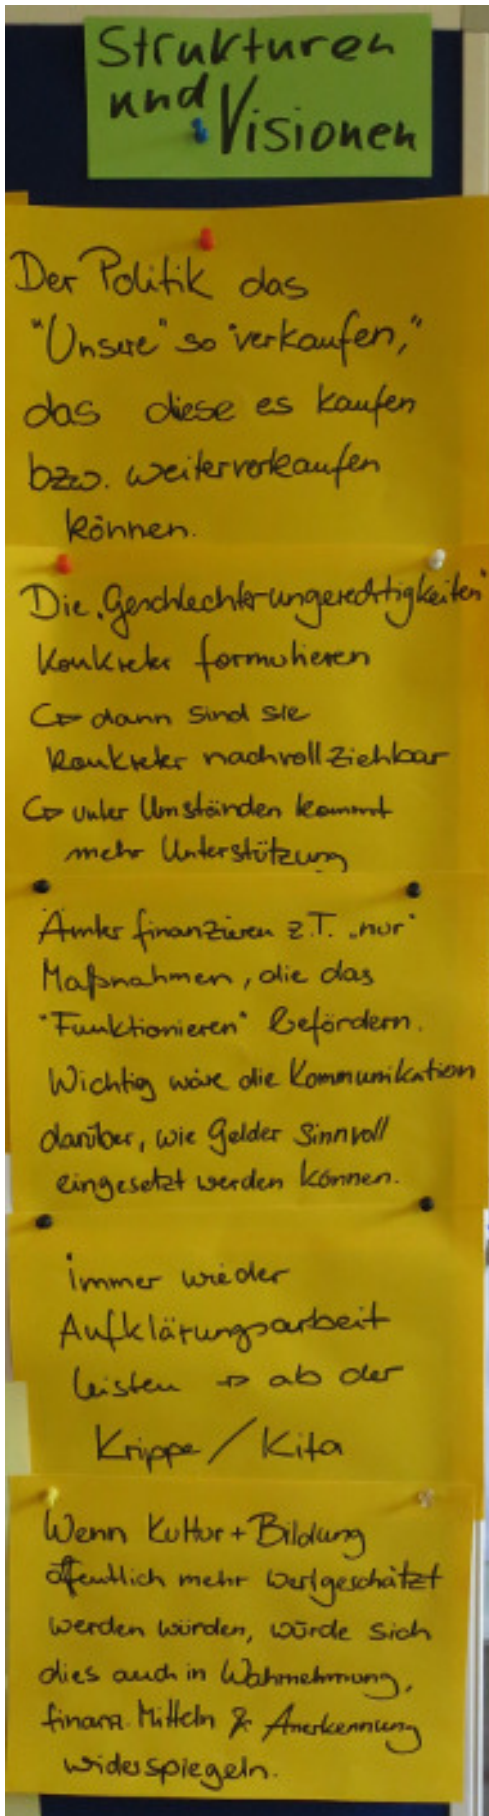 Strukturen
und Visionen
Der Politik das
"Unsere" so "verkaufen,"
das diese es kaufen
bzw. weiterverkaufen
können.
Die „Geschlechterungerechtigkeiten"
konkreter formulieren
↪ dann sind sie
konkreter nachvollziehbar
↪ unter Umständen kommt
mehr Unterstützung
Ämter finanzieren z.T. „nur"
Maßnahmen, die das
"Funktionieren" befördern.
Wichtig wäre die Kommunikation
darüber, wie Gelder sinnvoll
eingesetzt werden können.
immer wieder
Aufklärungsarbeit
leisten → ab der
Krippe / Kita
Wenn Kultur + Bildung
öffentlich mehr wertgeschätzt
werden würden, würde sich
dies auch in Wahrnehmung,
finanz. Mitteln & Anerkennung
widerspiegeln.